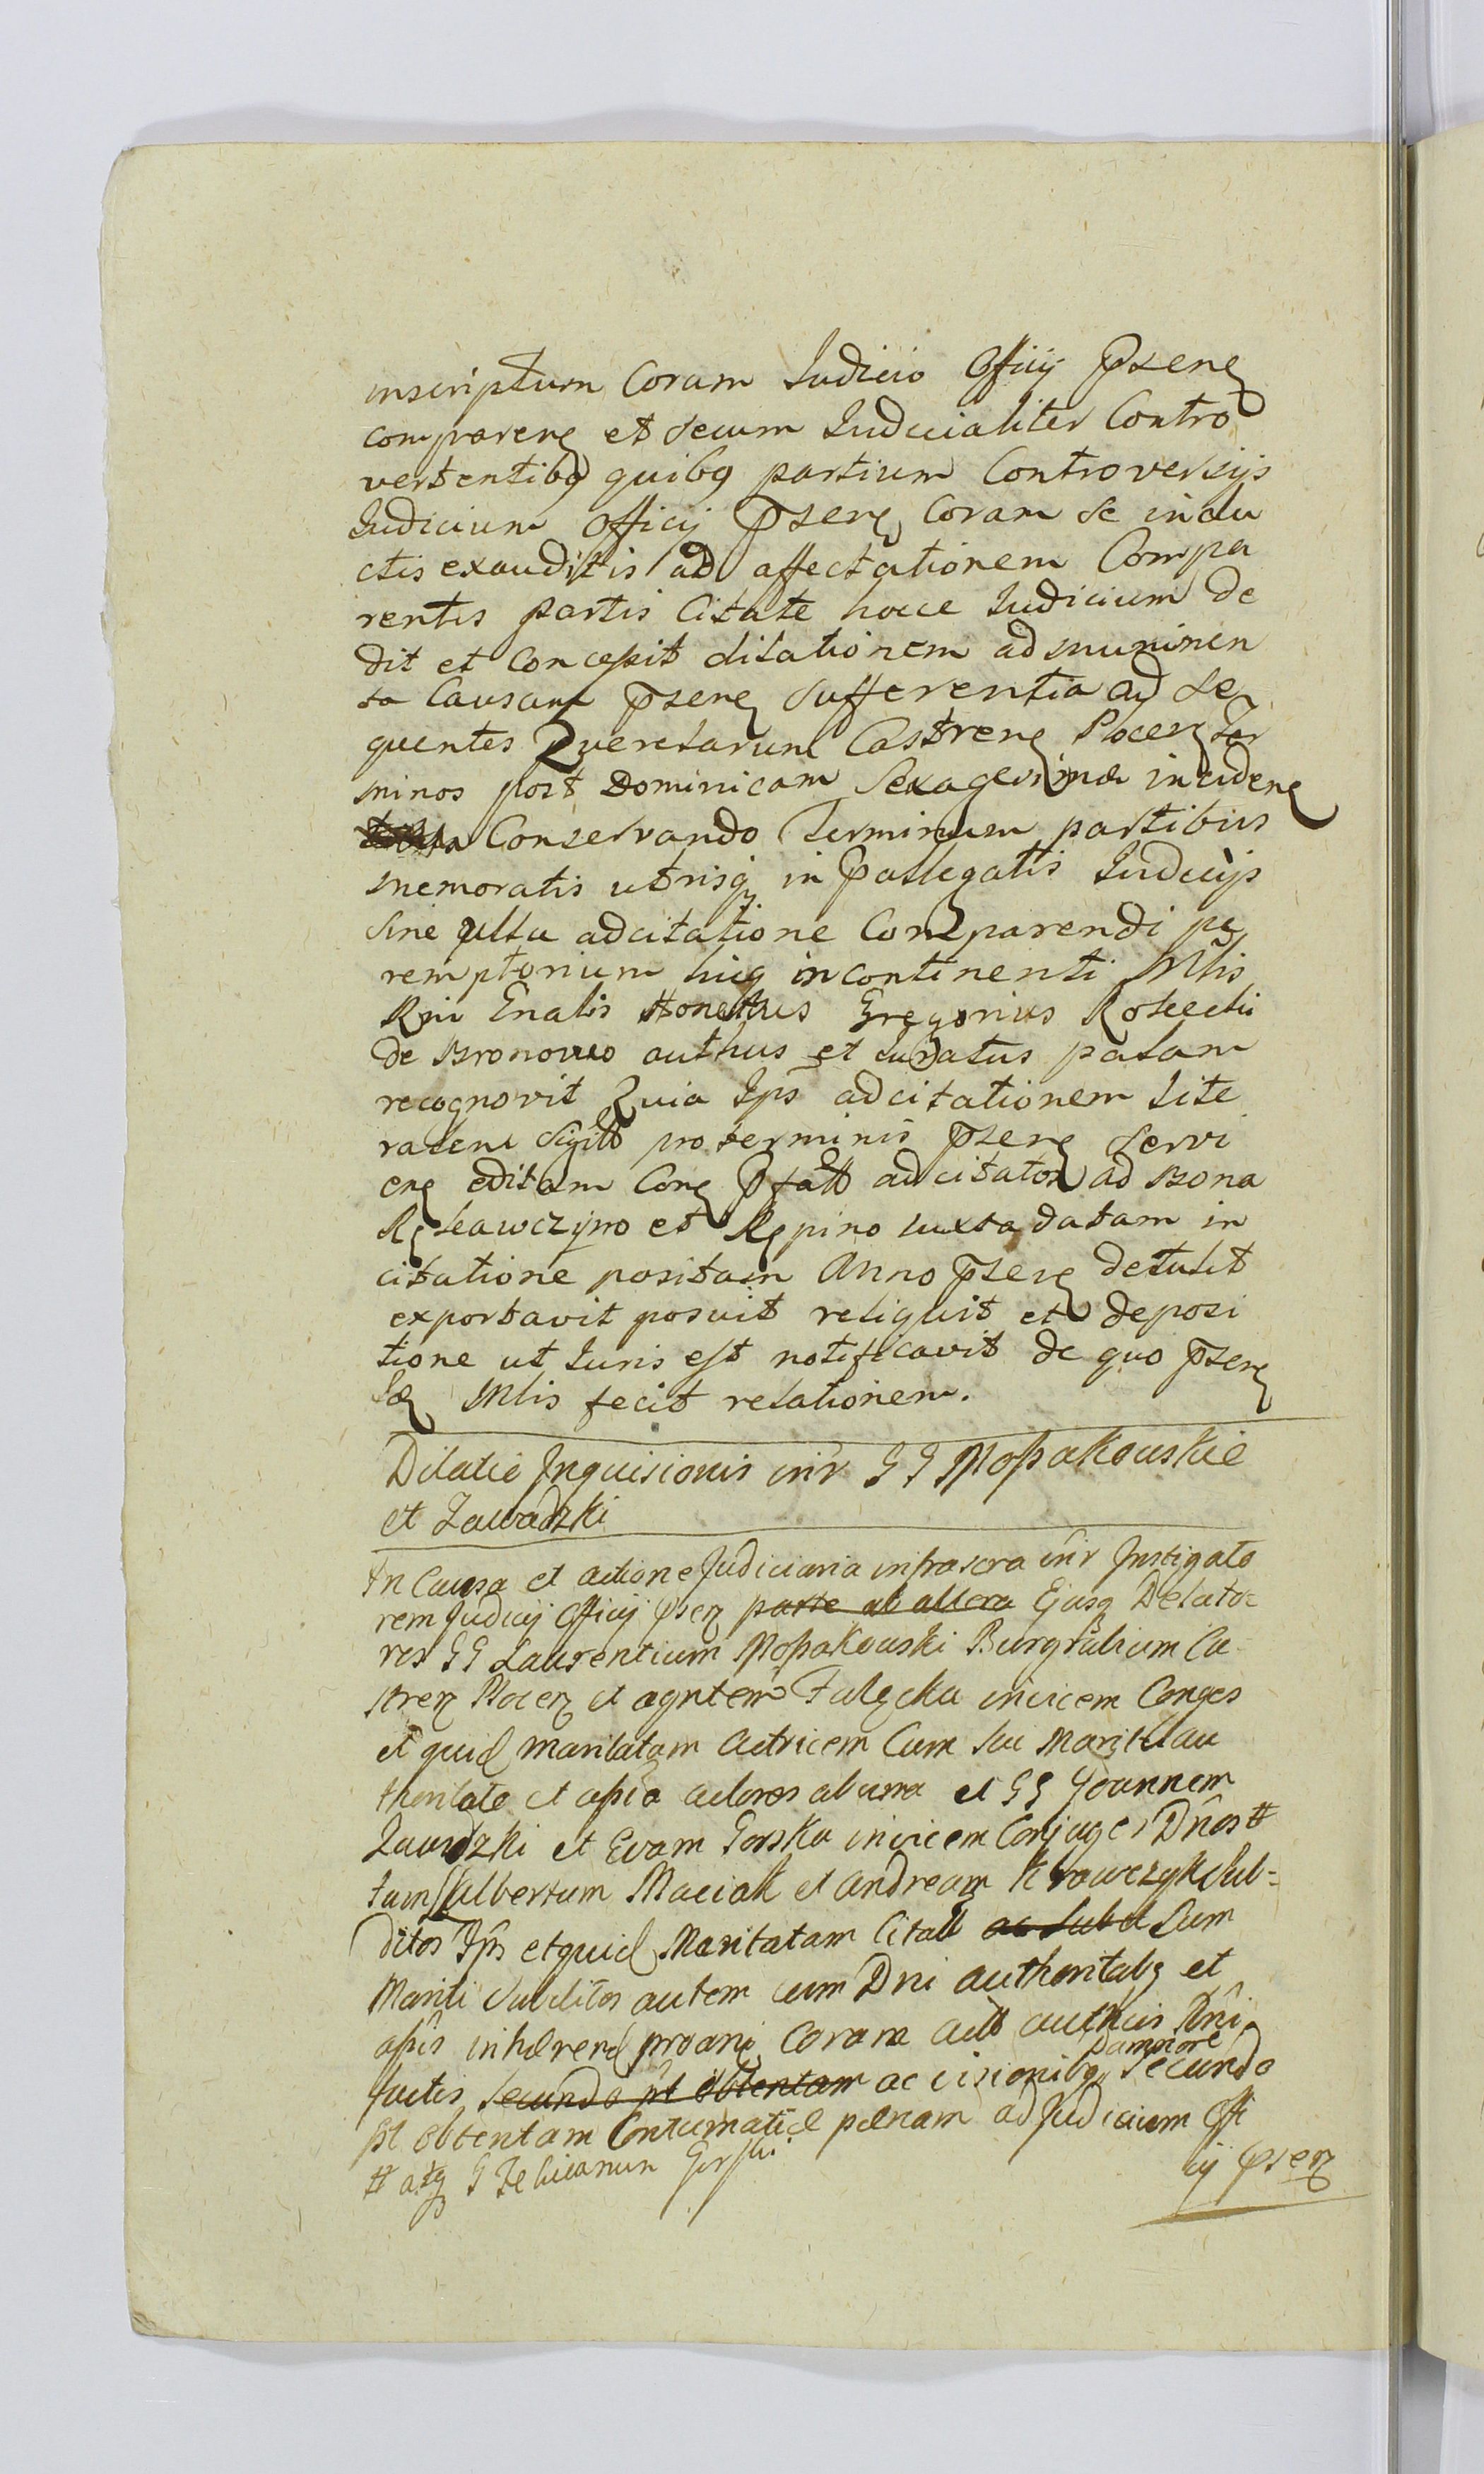 inscriptum Coram Judicio Officij Psenę
comparenę et secum Judicialiter Contro
vertentibq quibq partium Controversijs
Judicium Officij Psenę Coram se indu
ctis exauditis ad affectationem Compa
rentis partis Citate hocce Judicium de
dit et Concessit dilationem ad munimen
ta Causam Psenę sufferentia ad se
quentes Querelarum Castrenę Plocenę Ter
minos post Dominicam Sexagesimæ incidenę
Conservando Terminum partibus
memoratis utrisq in Pallegatis Judicijs
sine ulla adcitatione Comparendi pe
remptorium huiq incontinenti Mlis
Rni Gnalis Honestus Gregorius
de Bronowo authus et Juratus palam
recognovit Quia Ips adcitationem lite
ralem Sigill pro terminis Psenę servi
enę editam Conę Pfatt adcitator ad Bona
et Rępino Juxta datam in
citatione positam Anno Psenę detulit
exportavit posuit reliquit et deposi
tione ut Juris est notificavit de quo Psenę
Mlis fecit relationem.
Dilatio Inquisionis intr GG Mossakowskie
et Zawadzki
In Causa et actione Judiciaria infrascra intr Instigato
rem Judicij Officij Psenę parte ab altera Ejusq Delato
res GG Laurentium Mossakowski Burgrabium Ca
strenę Plocenę et agntem Falęcka invicem Conges
et quid maritatam Actricem Cum sui Mariti au
thoritate et assia actores ab una et GG Joannem
Zawadzki et Evam Gorska invicem Conjuges Dnos #
tum Albertum Maciak et Andream Krawczyk Sub=
ditos Ips et quid Maritatam Citatt ac Subd Cum
Mariti Subditos autem cum Dni authoritatq et
assis inhærend proanę Coram Actt authcis Dni
factis secundo pt obtentam ac cisionibq Damniore Secundo
pt obtentam Contumatiæ pænam ad Judicium Offi
# atq G Felicianum Gorski
ij Psenę